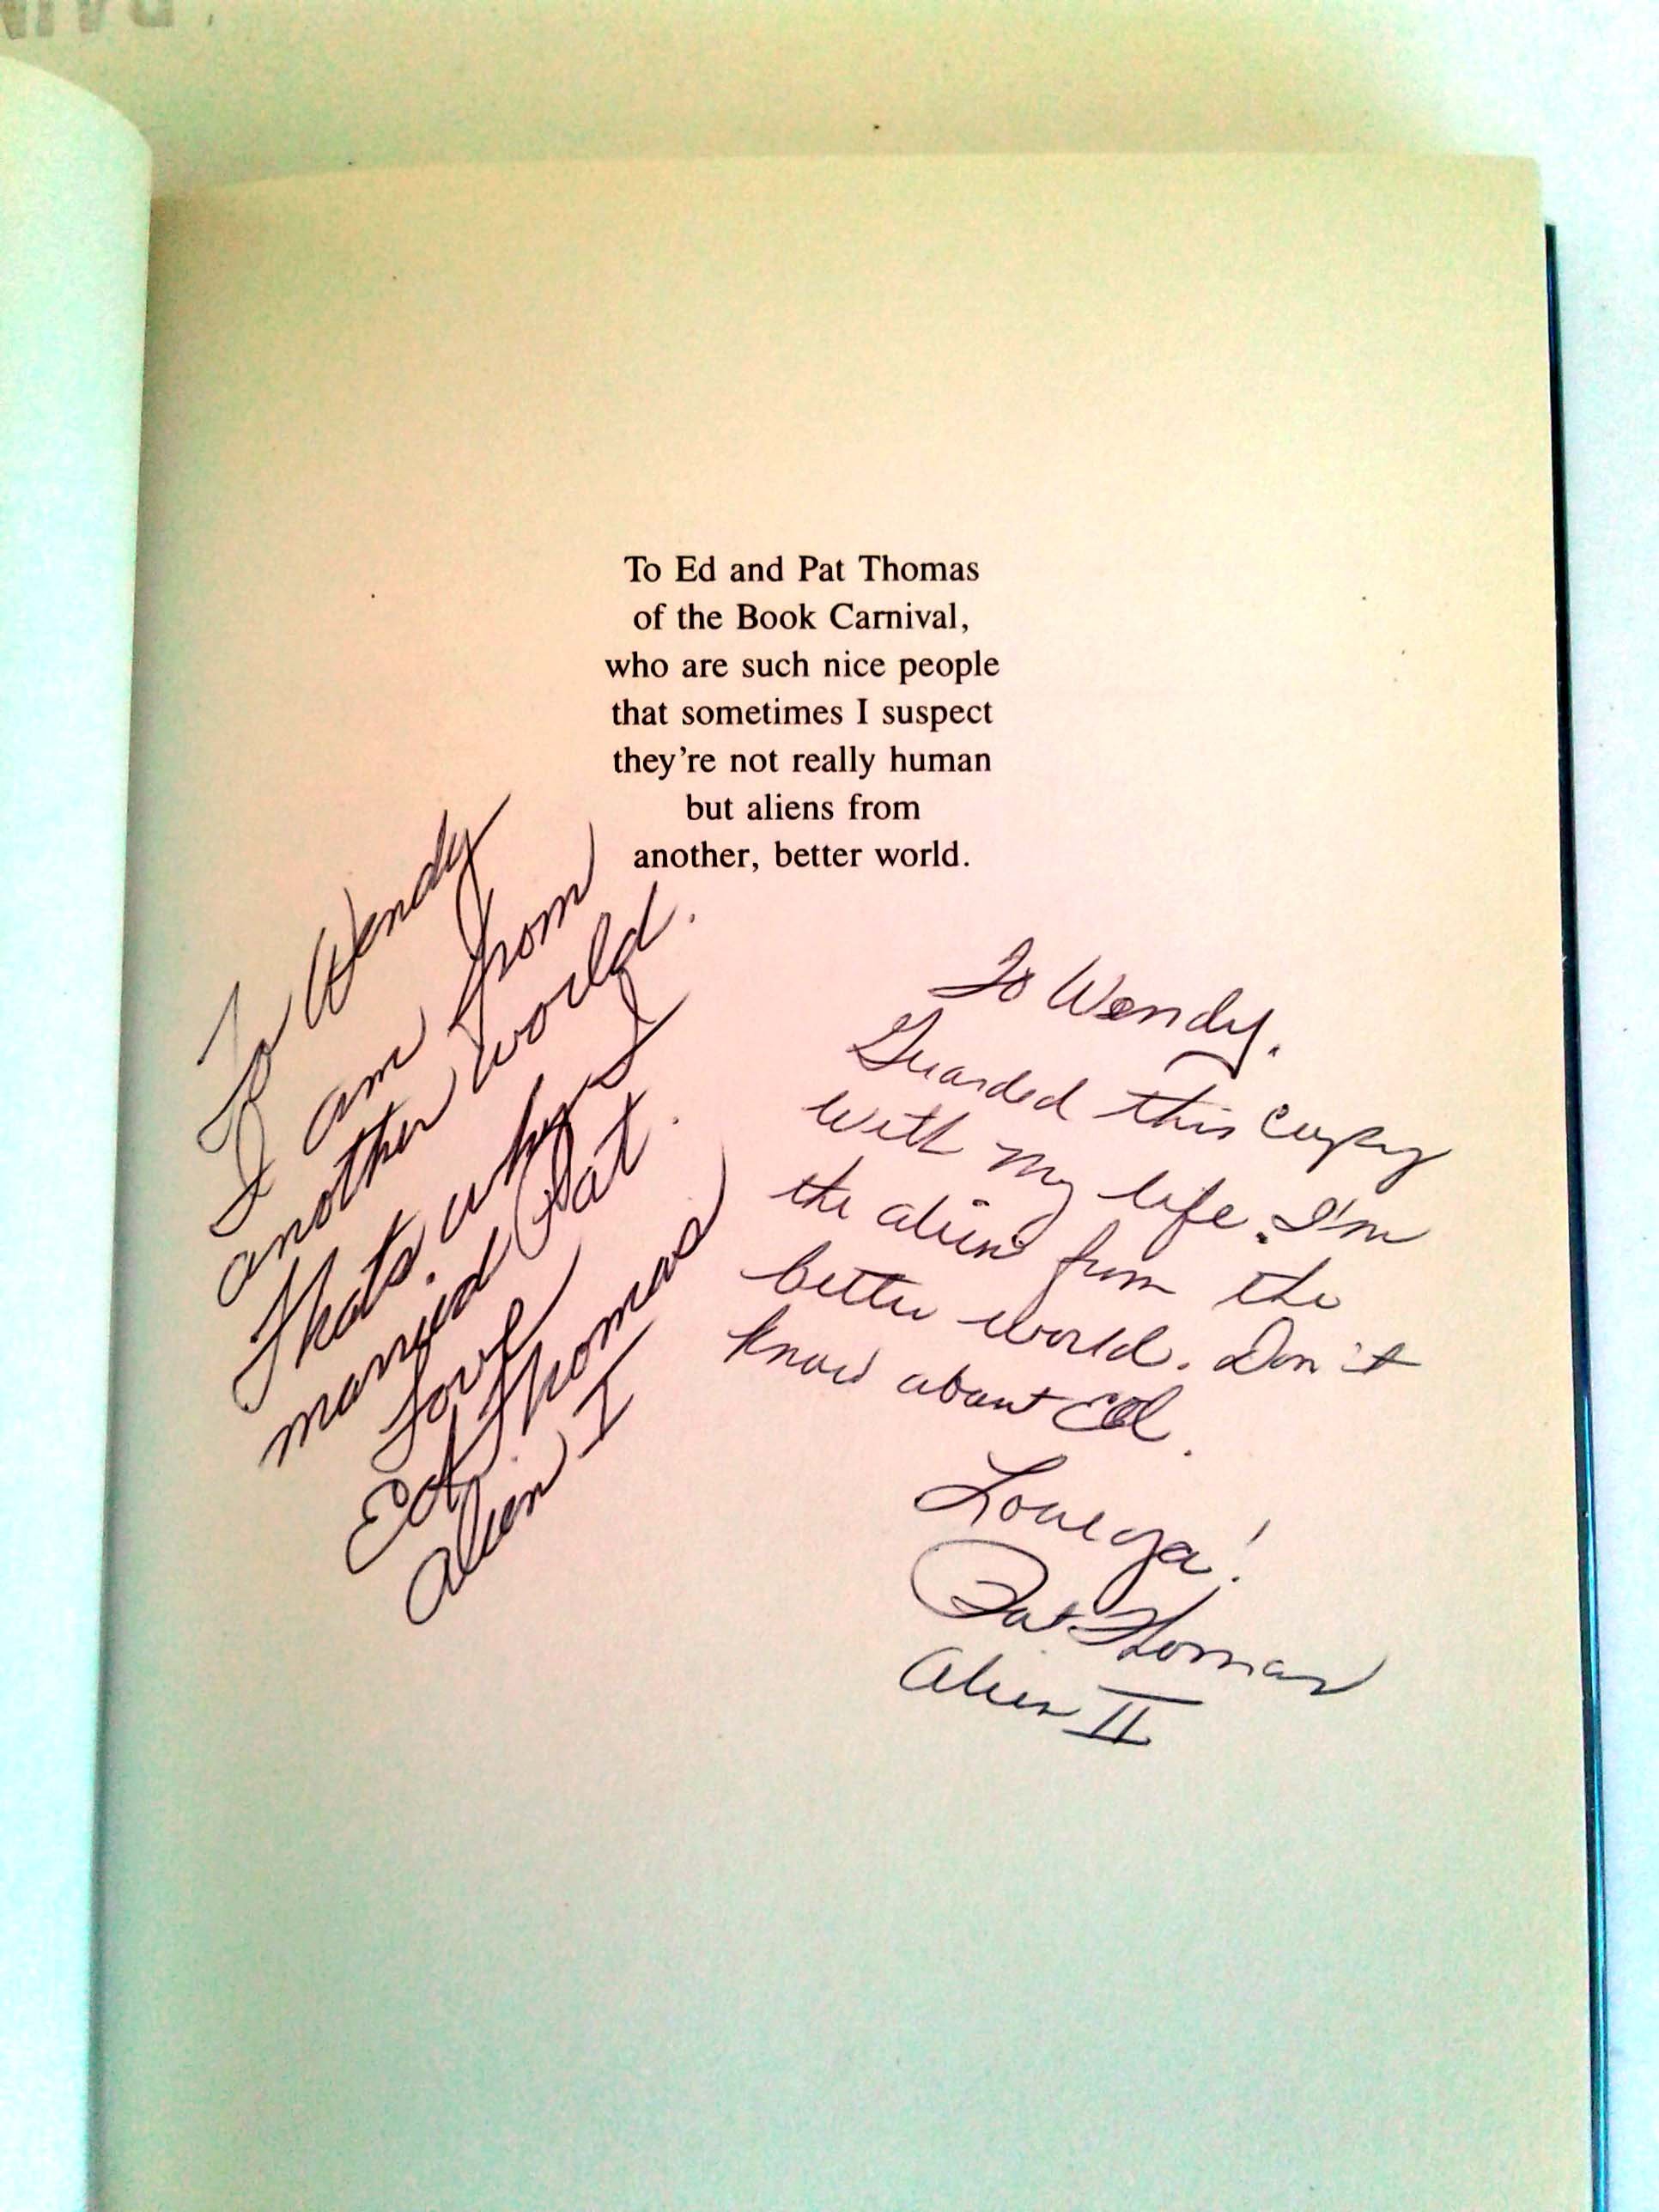 To Ed and Pat Thomas
of the Book Carnival,
who are such nice people
that sometimes I suspect
they're not really human
but aliens from
another, better world.
To Wendy
I am from
another world.
Thats. why I
married Pat.
Love
Ed Thomas
Alien I
To Wendy.
Guarded this copy
with my life. I'm
the alien from the
better world. Don't
know about Ed.
Love ya!
Pat Thomas
Alien II